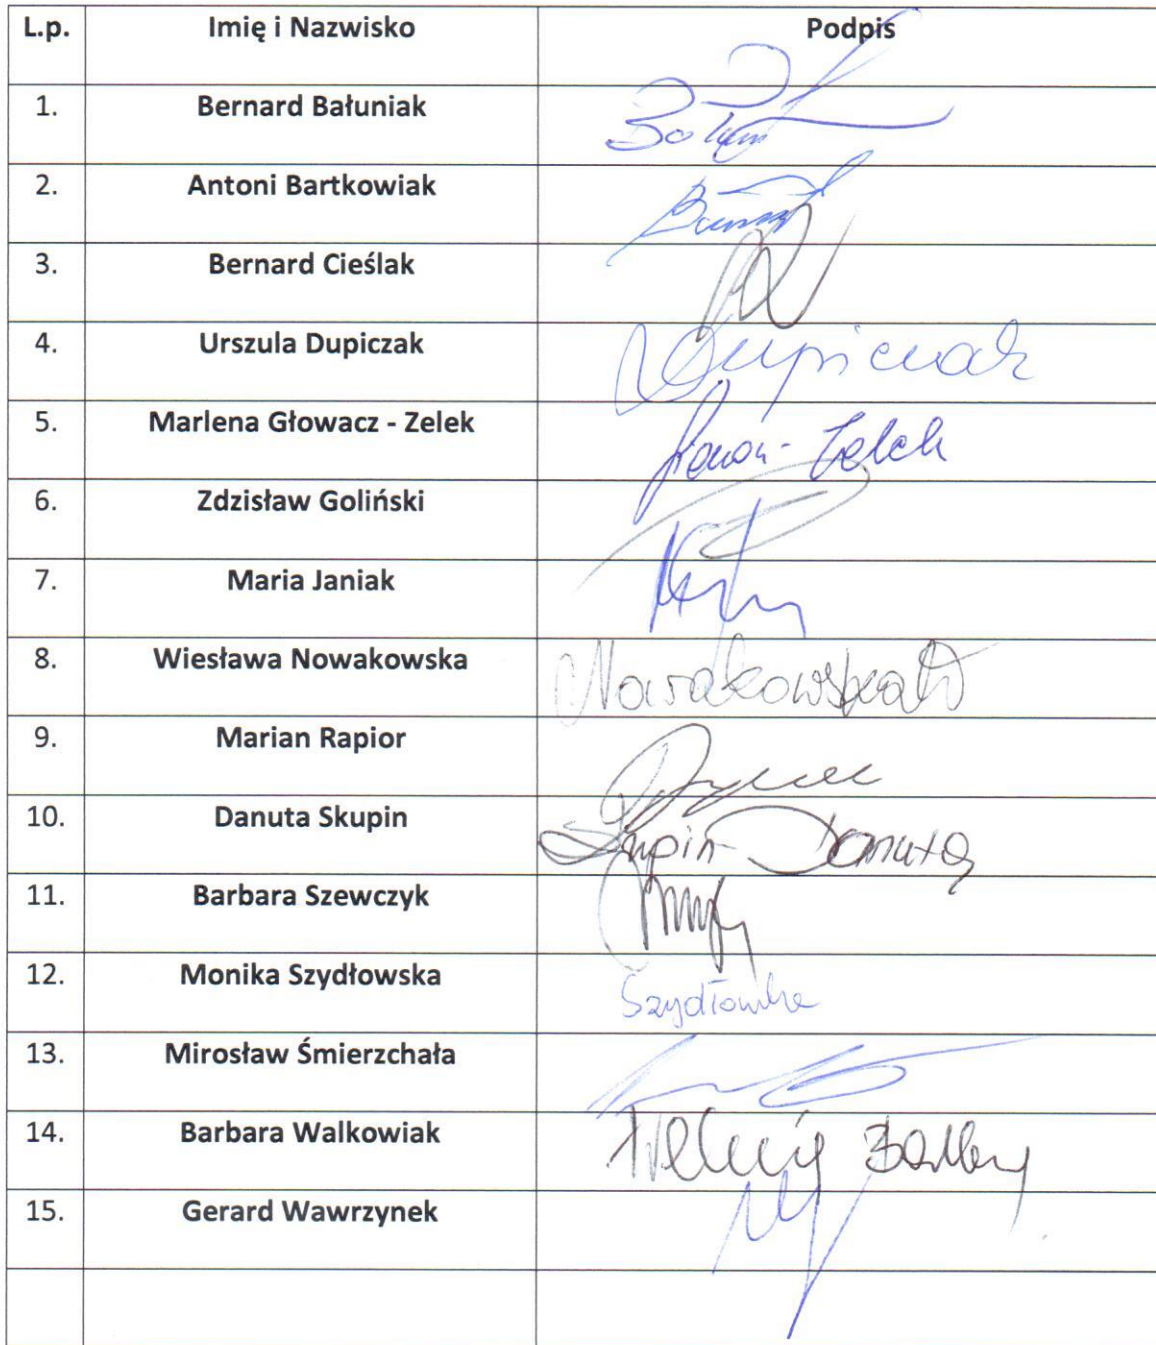 L.p. Imię i Nazwisko Podpis
1. Bernard Bałuniak
2. Antoni Bartkowiak
3. Bernard Cieślak
4. Urszula Dupiczak Dupiczak
5. Marlena Głowacz - Zelek
6. Zdzisław Goliński
7. Maria Janiak
8. Wiesława Nowakowska Nowakowska W
9. Marian Rapior
10. Danuta Skupin Skupin Danuta
11. Barbara Szewczyk
12. Monika Szydłowska Szydłowska
13. Mirosław Śmierzchała
14. Barbara Walkowiak
15. Gerard Wawrzynek